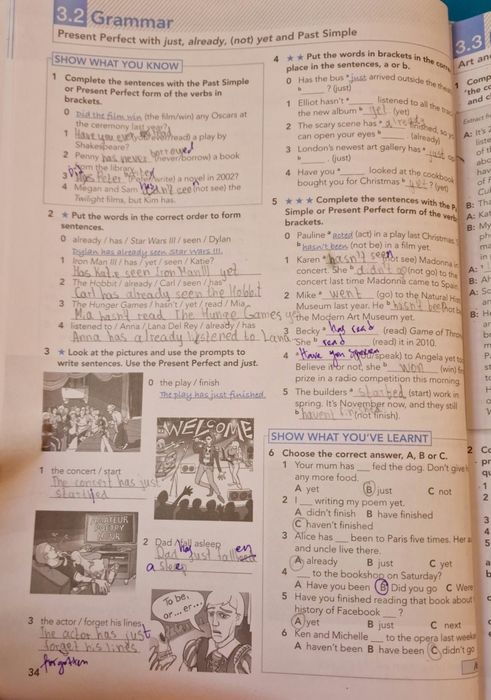 3.2 Grammar
Present Perfect with just, already, (not) yet and Past Simple
SHOW WHAT YOU KNOW
1 Complete the sentences with the Past Simple
or Present Perfect form of the verbs in
brackets.
0 Did the film win (the film/win) any Oscars at
the ceremony last year?
1 Have you ever read) a play by
Shakespeare?
2 Penny has never borrowed (never/borrow) a book
from the library.
3 Peter write) a novel in 2002?
4 Megan and Sam (not see) the
Twilight films, but Kim has.
2 ★ Put the words in the correct order to form
sentences.
0 already / has / Star Wars III / seen / Dylan
Dylan has already seen Star Wars III.
1 Iron Man III / has / yet / seen / Katie?
Has Kate seen Iron Man III yet
2 The Hobbit / already / Carl / seen / has
Carl has already seen the Hobbit
3 The Hunger Games / hasn't / yet / read / Mia
Mia hasn't read The Hunge Games yet
4 listened to / Anna / Lana Del Rey / already / has
Anna has already lystened to Lana
3 ★ Look at the pictures and use the prompts to
write sentences. Use the Present Perfect and just.
0 the play / finish
The play has just finished.
WELCOME
1 the concert / start
The concert has just
started
AMATEUR
POETRY
HOUR
2 Dad / fall asleep
Dad has just fallen
a sleep
To be,
or ...er...
3 the actor / forget his lines
The actor has just
forget his lines
forgotten
34
4 ★★ Put the words in brackets in the
place in the sentences, a or b.
0 Has the bus a just arrived outside the
b ? (just)
1 Elliot hasn't a listened to all the
the new album b yet (yet)
2 The scary scene has a already finished, so
can open your eyes b (already)
3 London's newest art gallery has a just
b . (just)
4 Have you a looked at the cookbook
bought you for Christmas b yet ? (yet)
5 ★★★ Complete the sentences with the
Simple or Present Perfect form of the verbs
brackets.
0 Pauline a acted (act) in a play last Christmas
b hasn't been (not be) in a film yet.
1 Karen a hasn't seen (not see) Madonna in
concert. She b did't go (not go) to the
concert last time Madonna came to Spain
2 Mike a went (go) to the Natural
Museum last year. He b hasn't been
the Modern Art Museum yet.
3 Becky a has read (read) Game of
She b read (read) it in 2010.
4 a Have you spoken speak) to Angela yet
Believe it or not, she b won (win)
prize in a radio competition this morning
5 The builders a started (start) work in
spring. It's November now, and they still
b (not finish).
SHOW WHAT YOU'VE LEARNT
6 Choose the correct answer, A, B or C.
1 Your mum has __ fed the dog. Don't give
any more food.
A yet B just C not
2 I __ writing my poem yet.
A didn't finish B have finished
C haven't finished
3 Alice has __ been to Paris five times. Her
and uncle live there.
A already B just C yet
4 __ to the bookshop on Saturday?
A Have you been B Did you go C Were
5 Have you finished reading that book about
history of Facebook __ ?
A yet B just C next
6 Ken and Michelle __ to the opera last week
A haven't been B have been C didn't go
3.3